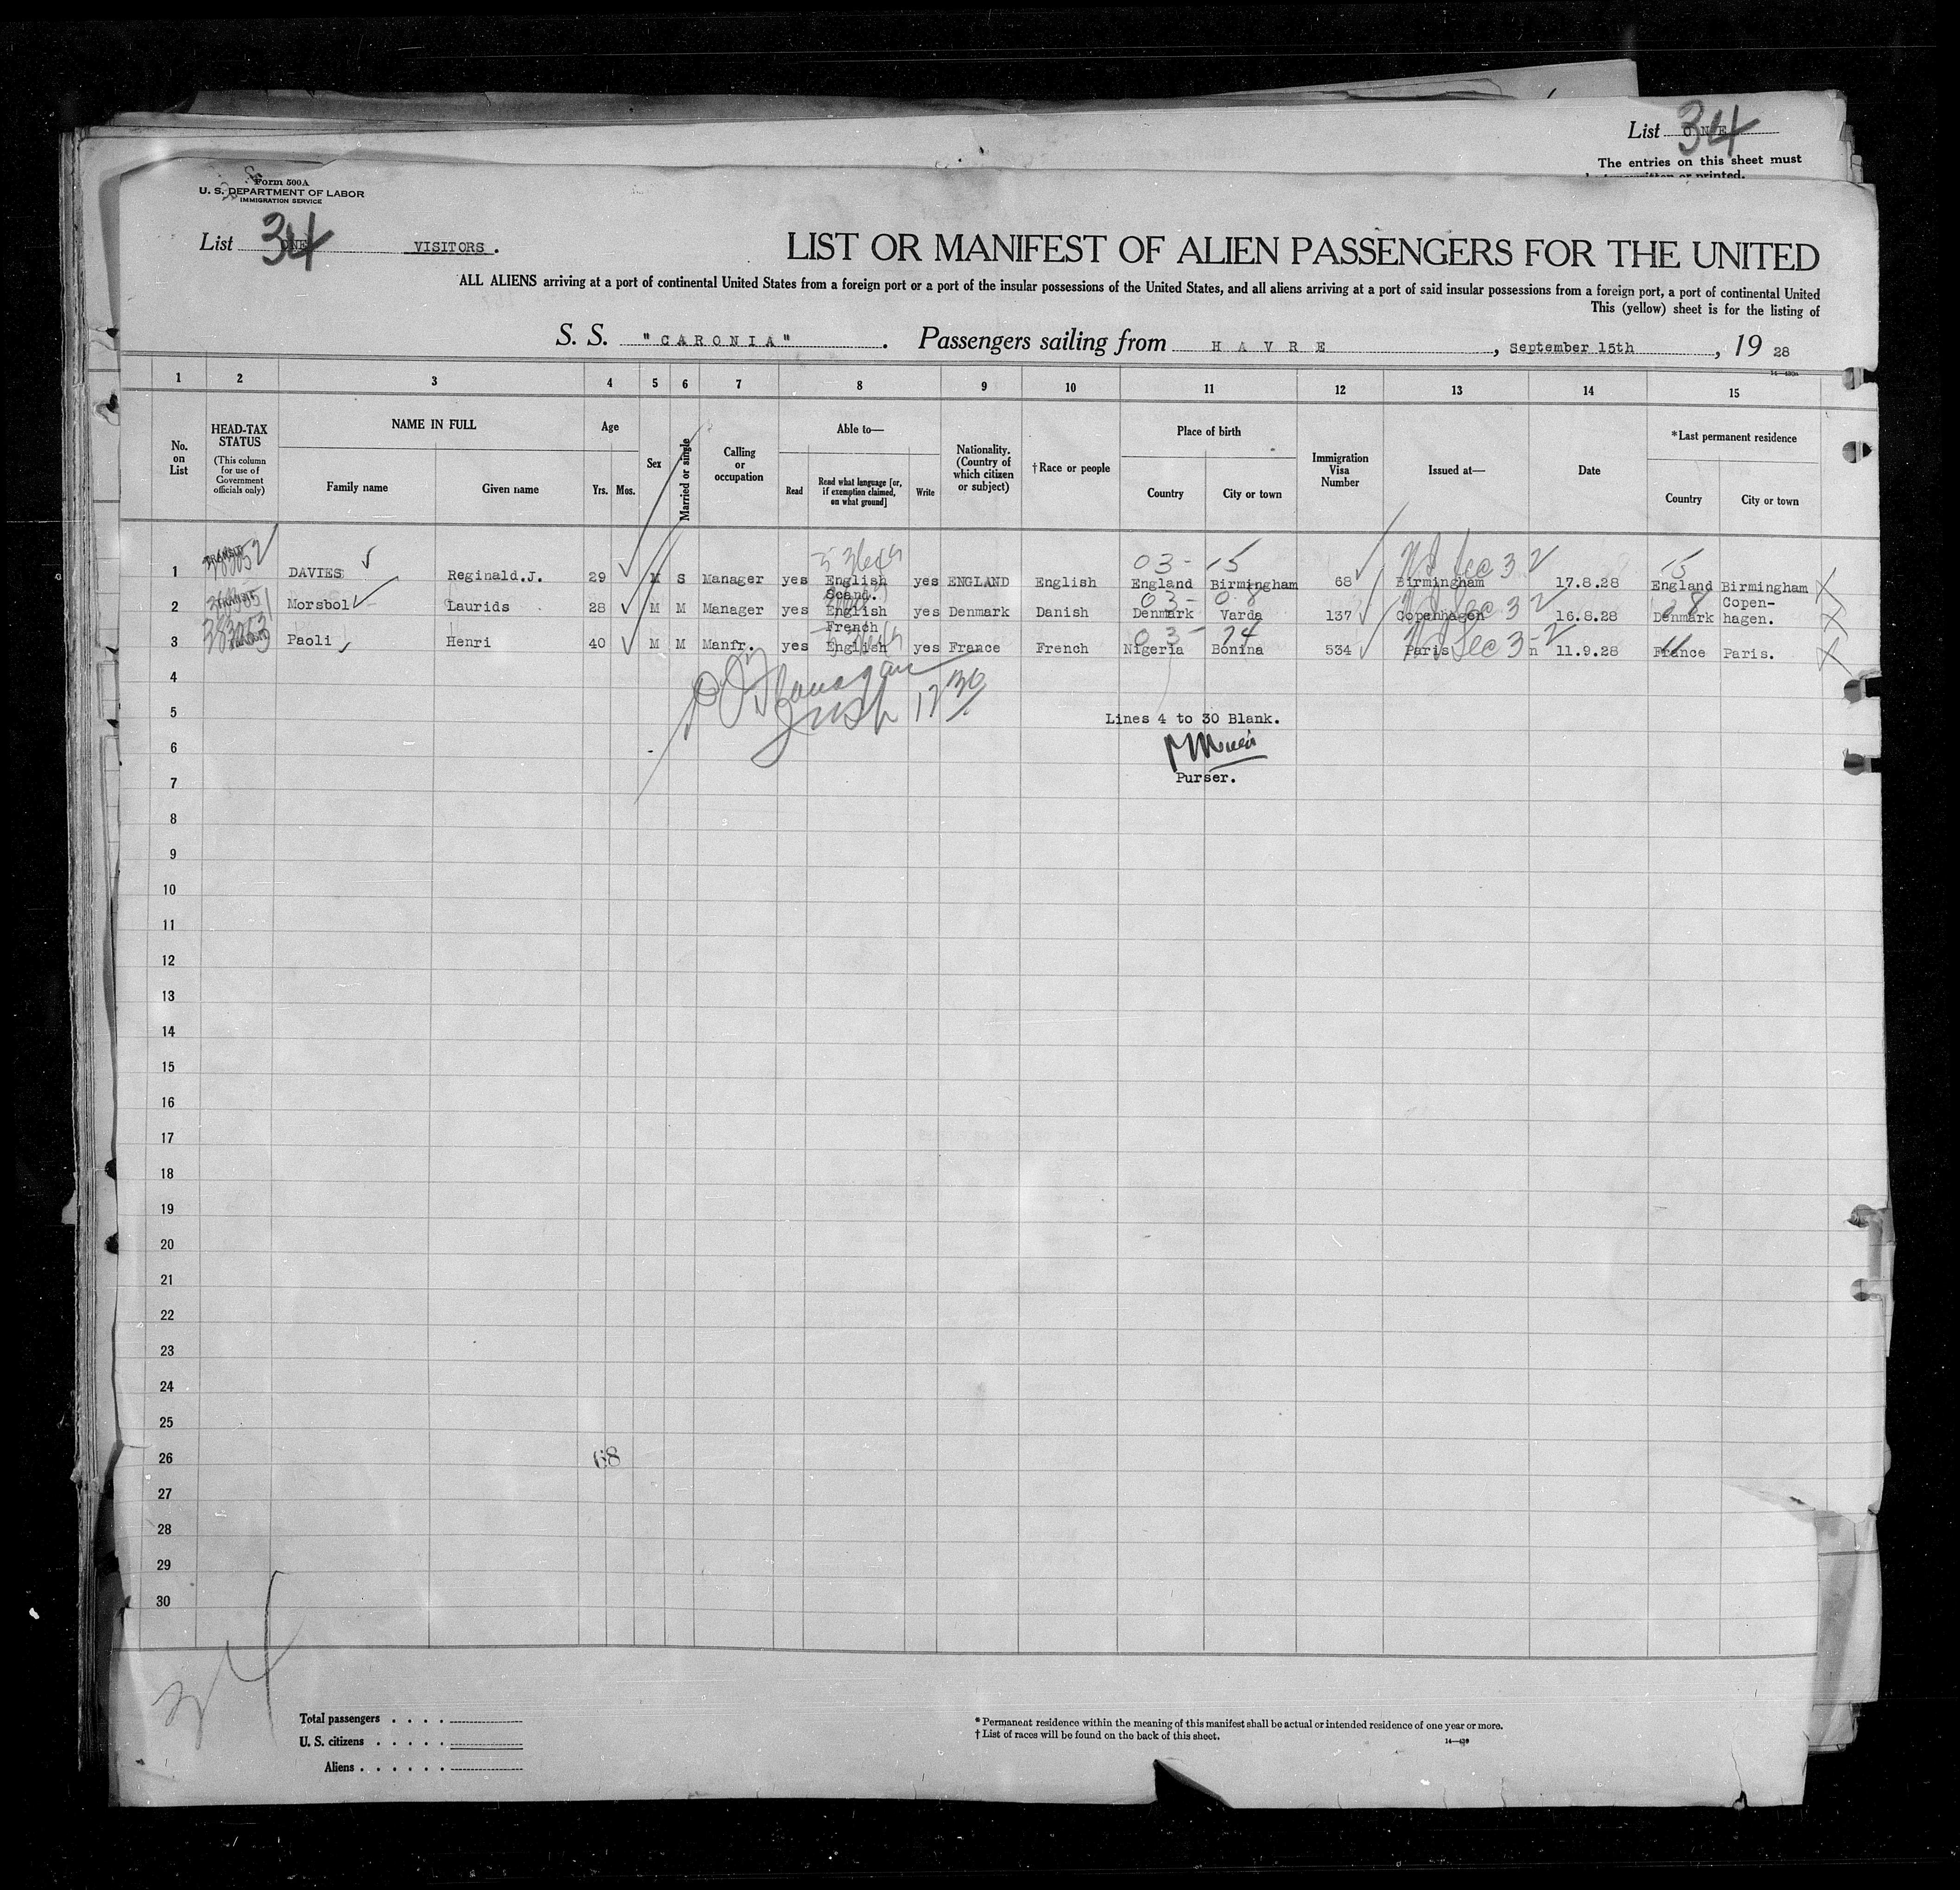 List ONE 34
The entries on this sheet must
Form 500A
U. S. DEPARTMENT OF LABOR
IMMIGRATION SERVICE
List ONE 34 VISITORS.
LIST OR MANIFEST OF ALIEN PASSENGERS FOR THE UNITED
ALL ALIENS arriving at a port of continental United States from a foreign port or a port of the insular possessions of the United States, and all aliens arriving at a port of said insular possessions from a foreign port, a port of continental United
This (yellow) sheet is for the listing of
S. S. "CARONIA". Passengers sailing from HAVRE, September 15th, 1928
1 2 3 4 5 6 7 8 9 10 11 12 13 14 15
No. on List
HEAD-TAX STATUS (This column for use of Government officials only)
NAME IN FULL
Family name Given name
Age
Yrs. Mos.
Sex
Married or single
Calling or occupation
Able to—
Read
Read what language [or, if exemption claimed, on what ground]
Write
Nationality. (Country of which citizen or subject)
†Race or people
Place of birth
Country City or town
Immigration Visa Number
Issued at—
Date
*Last permanent residence
Country City or town
03- 15 15
1 TRANSIT DAVIES Reginald.J. 29 M S Manager yes English yes ENGLAND English England Birmingham 68 Birmingham Sec 3 2 17.8.28 England Birmingham
2 TRANSIT Morsbol Laurids 28 M M Manager yes Scand. English yes Denmark Danish Denmark Varda 137 Copenhagen Sec 3 2 16.8.28 Denmark Copen-hagen.
3 Paoli Henri 40 M M Manfr. yes French English yes France French Nigeria Bonina 534 Paris Sec 3-2 11.9.28 France Paris.
4
5 Lines 4 to 30 Blank.
6
7 Purser.
8
9
10
11
12
13
14
15
16
17
18
19
20
21
22
23
24
25
26 68
27
28
29
30
34
Total passengers . . . .
U. S. citizens . . . . .
Aliens . . . . . .
* Permanent residence within the meaning of this manifest shall be actual or intended residence of one year or more.
† List of races will be found on the back of this sheet.
14—430